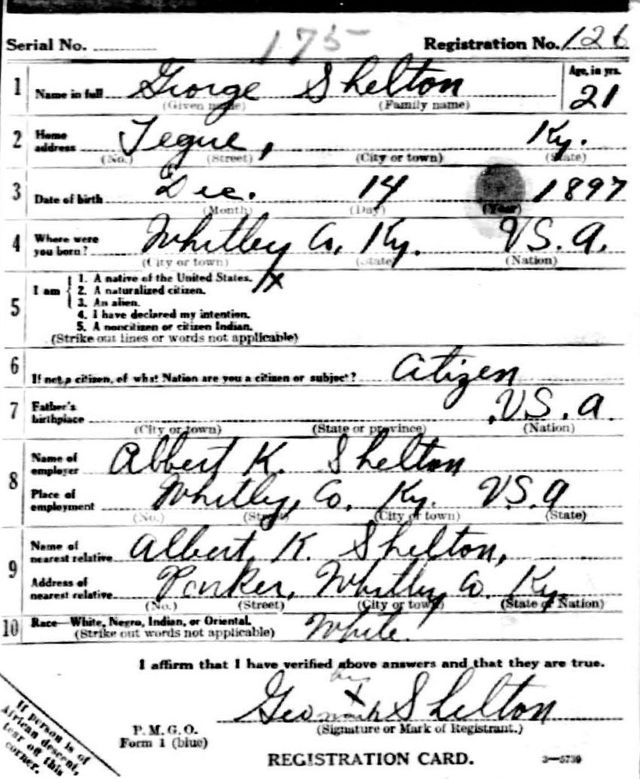 175
Serial No. Registration No. 126
1 Name in full George Shelton Age, in yrs.
(Given name) (Family name) 21
2 Home address Tegue, Ky.
(No.) (Street) (City or town) (State)
3 Date of birth Dec. 14 1897
(Month) (Day) (Year)
4 Where were you born? Whitley Co, Ky. U.S.A.
(City or town) (State) (Nation)
5 I am
1. A native of the United States. X
2. A naturalized citizen.
3. An alien.
4. I have declared my intention.
5. A noncitizen or citizen Indian.
(Strike out lines or words not applicable)
6 If not a citizen, of what Nation are you a citizen or subject? Citizen
7 Father's birthplace U.S.A.
(City or town) (State or province) (Nation)
8 Name of employer Albert K. Shelton
Place of employment Whitley, Co, Ky. U.S.A
(No.) (Street) (City or town) (State)
9 Name of nearest relative Albert K. Shelton,
Address of nearest relative Parker, Whitley Co. Ky.
(No.) (Street) (City or town) (State or Nation)
10 Race—White, Negro, Indian, or Oriental. White.
(Strike out words not applicable)
I affirm that I have verified above answers and that they are true.
by
Geo X Shelton
mark
P. M. G. O. (Signature or Mark of Registrant.)
Form 1 (blue) REGISTRATION CARD. 3—5739
If person is of
African descent,
tear off this
corner.